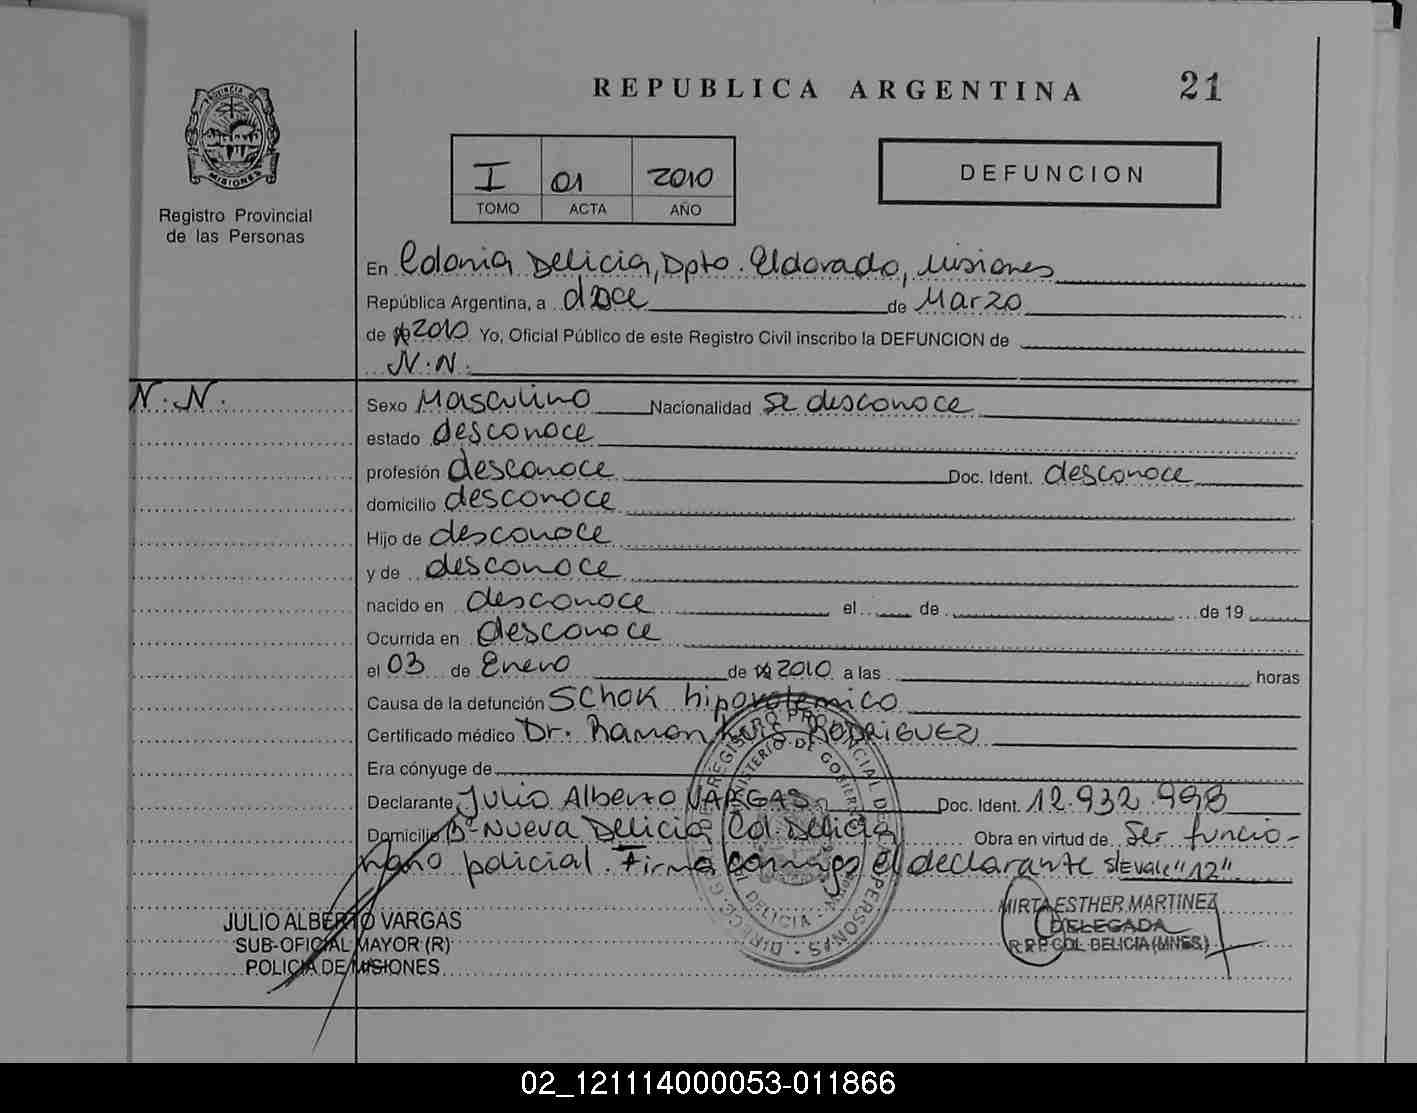 REPUBLICA ARGENTINA 21
PROVINCIA DE MISIONES
Registro Provincial
de las Personas
I 01 2010
TOMO ACTA AÑO
DEFUNCION
En Colonia Delicia, Dpto. Eldorado, Misiones
República Argentina, a doce de Marzo
de 2010 Yo, Oficial Público de este Registro Civil inscribo la DEFUNCION de
N.N.
N.N.
Sexo Masculino Nacionalidad se desconoce
estado desconoce
profesión desconoce Doc. Ident. desconoce
domicilio desconoce
Hijo de desconoce
y de desconoce
nacido en desconoce el de de 19
Ocurrida en desconoce
el 03 de Enero de 2010 a las horas
Causa de la defunción Schok hipovolemico
Certificado médico Dr. Ramon Luis RODRIGUEZ
Era cónyuge de
Declarante Julio Alberto VARGAS Doc. Ident. 12.932.998
Domicilio Bº Nueva Delicia Col. Delicia Obra en virtud de ser funcio-
nario policial. Firma conmigo el declarante s/Evale "12"
JULIO ALBERTO VARGAS
SUB-OFICIAL MAYOR (R)
POLICIA DE MISIONES
MIRTA ESTHER MARTINEZ
DELEGADA
R.P.P COL. DELICIA (MNES.)
02_121114000053-011866